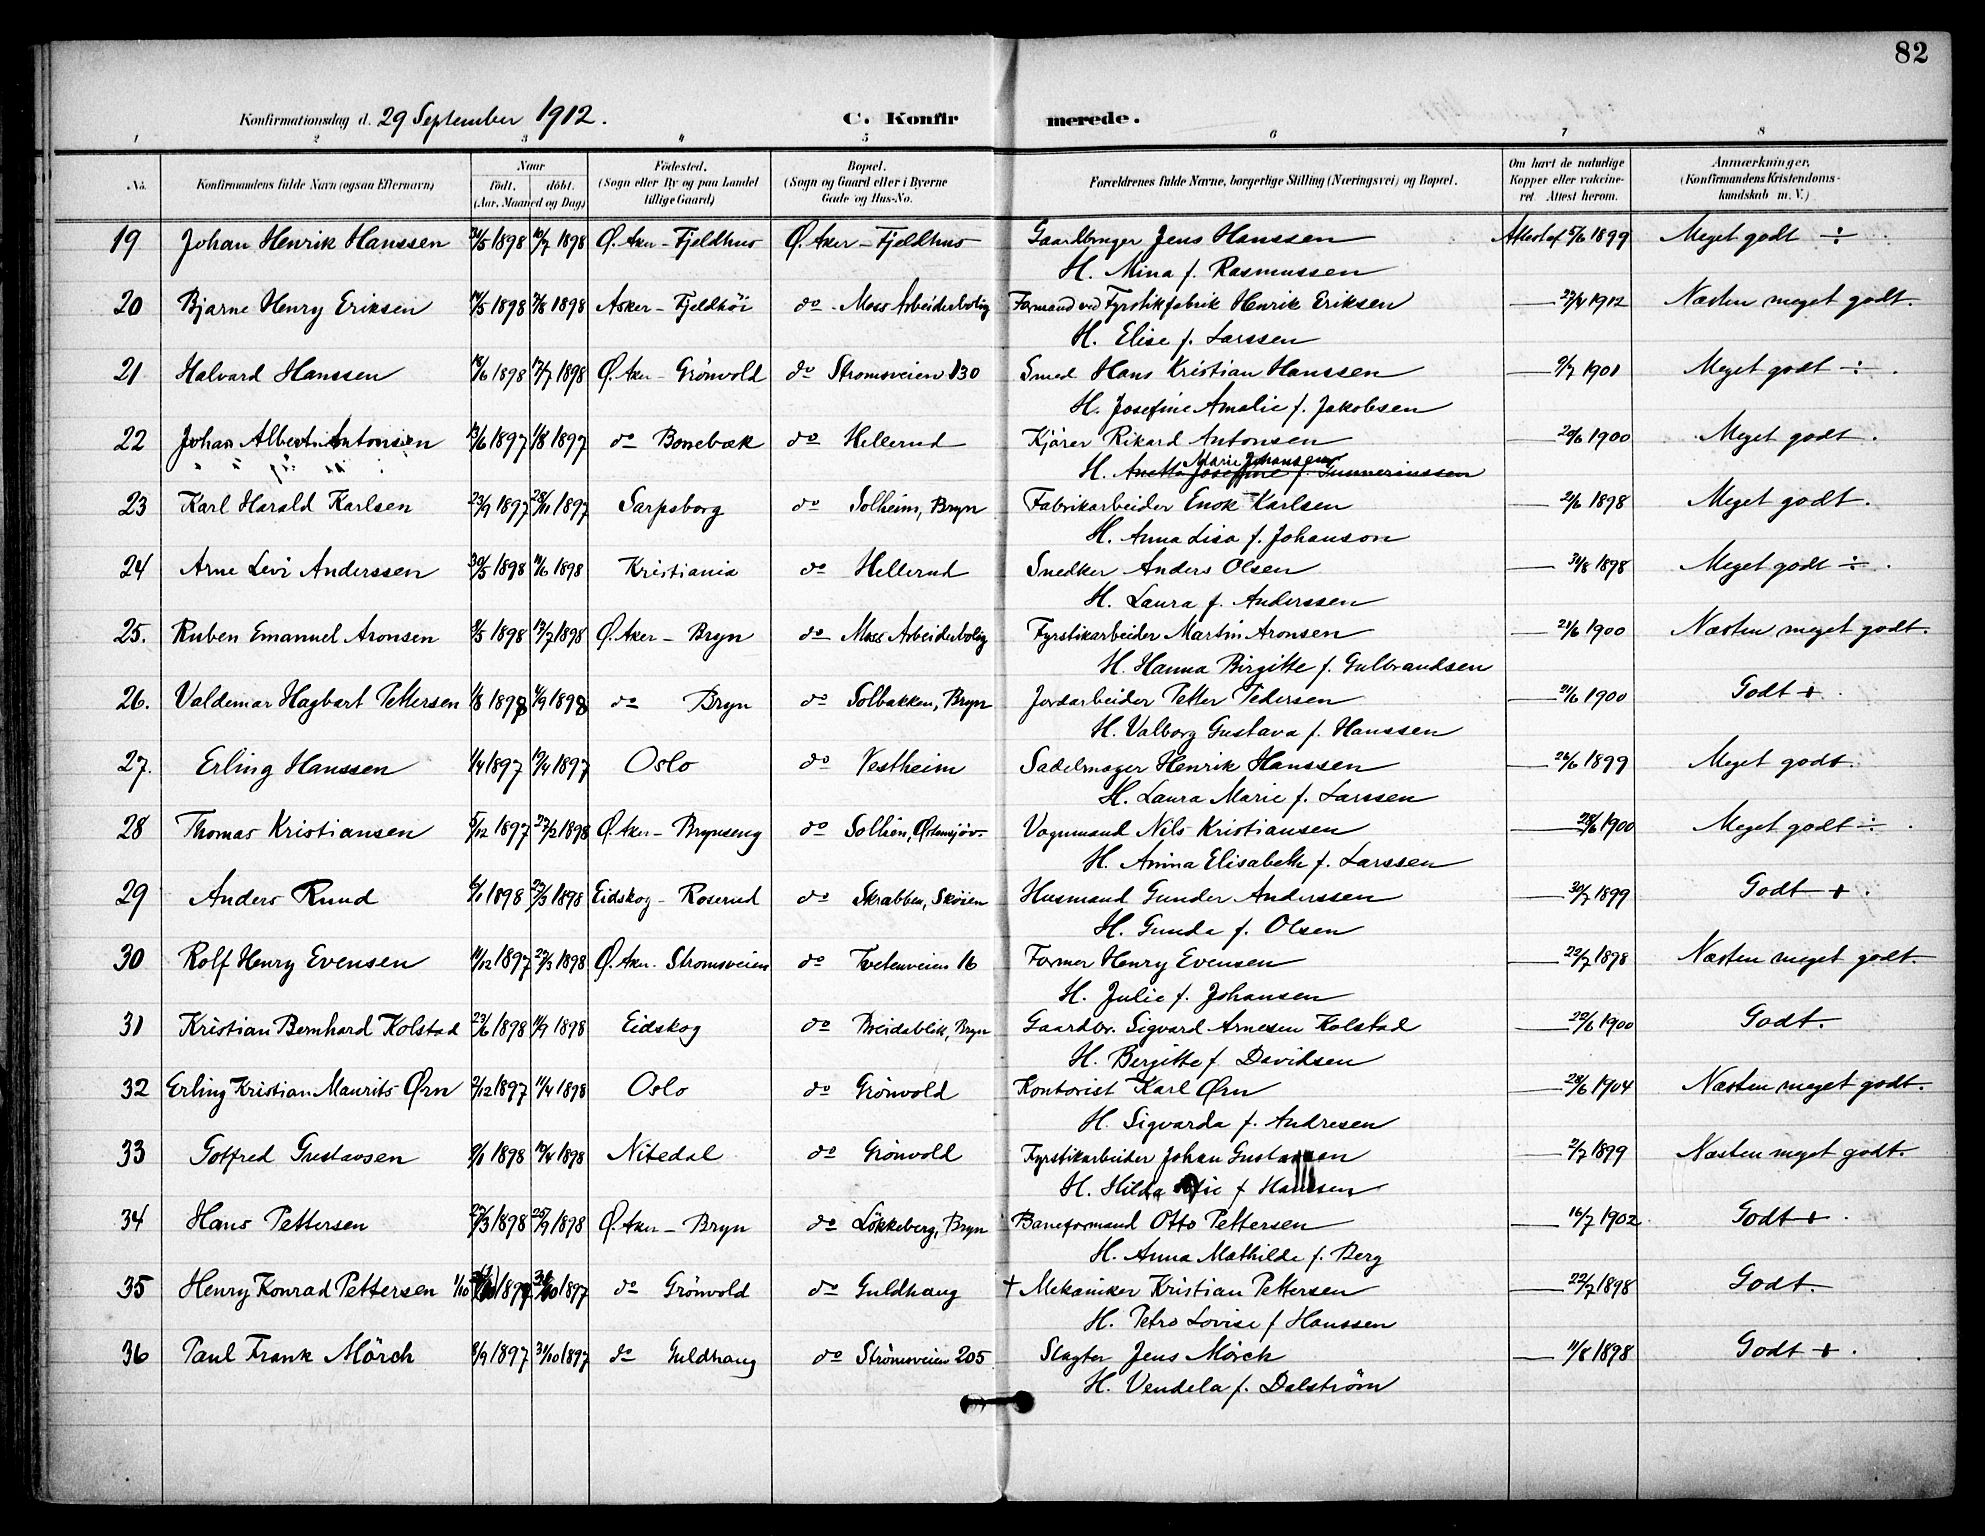 82
Konfirmationsdag d. 29 September 1912.
C. Konfirmerede.
1 2 3 4 5 6 7 8
No. Konfirmandens fulde Navn (ogsaa Efternavn) Naar født. døbt. (Aar, Maaned og Dag) Fødested. (Sogn eller By og paa Landet tillige Gaard) Bopæl. (Sogn og Gaard eller i Byerne Gade og Hus-No. Forældrenes fulde Navne, borgerlige Stilling (Næringsvei) og Bopæl. Om havt de naturlige Kopper eller vakcineret. Attest herom. Anmærkninger. (Konfirmandens Kristendomskundskab m. V.)
19 Johan Henrik Hanssen 1898 1898 Ø. Aker - Fjeldhus Ø. Aker - Fjeldhus Gaardbruger Jens Hanssen Attest af 5/6 1899 Meget godt ÷
H. Mina f. Rasmussen
20 Bjarne Henry Eriksen 1898 1898 Asker - Fjeldhöi do - Moss Arbeiderbolig Formand ved Fyrstikfabrik Henrik Eriksen — 1912 Næsten meget godt.
H. Elise f. Larssen
21 Halvard Hanssen 18/6 1898 17/7 1898 Ø. Aker - Grönvold do Stromsveien 130 Smed Hans Kristian Hanssen — 1901 Meget godt ÷
H. Josefine Amalie f. Jakobsen
22 Johan Albert Antonsen 1897 1/8 1897 do Bonebæk do Hellerud Kjører Rikard Antonsen — 1900 Meget godt.
H. Marie Johansen
23 Karl Harald Karlsen 23/9 1897 28/11 1897 Sarpsborg do Solheim, Bryn Fabrikarbeider Enok Karlsen — 2/6 1898 Meget godt.
H. Anna Lisa f. Johanson
24 Arne Levi Anderssen 30/5 1898 1898 Kristiania do Hellerud Snedker Anders Olsen — 1898 Meget godt ÷
H. Laura f. Anderssen
25. Ruben Emanuel Aronsen 1898 17/7 1898 Ø. Aker - Bryn do Moss Arbeiderbolig Fyrstikarbeider Martin Aronsen — 21/6 1900 Næsten meget godt.
H. Hanna Birgitte f. Gulbrandsen
26. Valdemar Hagbart Pettersen 1/8 1898 1898 do Bryn do Solbakken, Bryn Jordarbeider Petter Pedersen — 21/6 1900 Godt +
H. Valborg Gustava f. Hanssen
27. Erling Hanssen 1/4 1897 1897 Oslo do Vestheim Sadelmager Henrik Hanssen — 26/6 1899 Meget godt.
H. Laura Marie f. Larssen
28 Thomas Kristiansen 5/12 1897 27/2 1898 Ø. Aker - Brynseng do Solhien, Østensjøv. Vognmand Nils Kristiansen — 28/6 1900 Meget godt ÷
H. Anna Elisabeth f. Larssen
29 Anders Ruud 6/1 1898 27/3 1898 Eidskog - Roserud do Skrabben, Skøien Husmand Gunder Anderssen — 30/7 1899 Godt +
H. Gunda f. Olsen
30 Rolf Henry Evensen 14/12 1897 27/3 1898 Ø. Aker. Stromsveien do Tvetenveien 16 Former Henry Evensen — 22/7 1898 Næsten meget godt.
H. Julie f. Johansen
31 Kristian Bernhard Kolstad 23/6 1898 1898 Eidskog do Breidablik, Bryn Gaardbr. Sigvard Arnesen Kolstad — 22/6 1900 Godt.
H. Bergitte f. Davidsen
32 Erling Kristian Maurits Ørn 2/12 1897 11/4 1898 Oslo do Grönvold Kontorist Karl Ørn — 28/6 1904 Næsten meget godt.
H. Sigvarda f. Andresen
33 Gotfred Gustavsen 1898 10/4 1898 Nitedal do Grönvold Fyrstikarbeider Johan Gustavsen — 2/7 1899 Næsten meget godt.
H. Hilda f Hanssen
34 Hans Pettersen 27/3 1898 25/9 1898 Ø. Aker - Bryn do Løkkeberg, Bryn Baneformand Otto Pettersen — 16/7 1902. Godt +
H. Anna Mathilde f. Berg
35 Henry Konrad Pettersen 1/10 1897 31/10 1897 do Grönvold do Guldhaug + Mekaniker Kristian Pettersen — 22/7 1898 Godt.
H. Petra Lovise f Hanssen
36 Paul Frank Mörch 1897 31/10 1897 do Guldhaug do Strömsveien 205 Slagter Jens Mörch — 11/8 1898 Godt +
H. Vendela f. Dalström